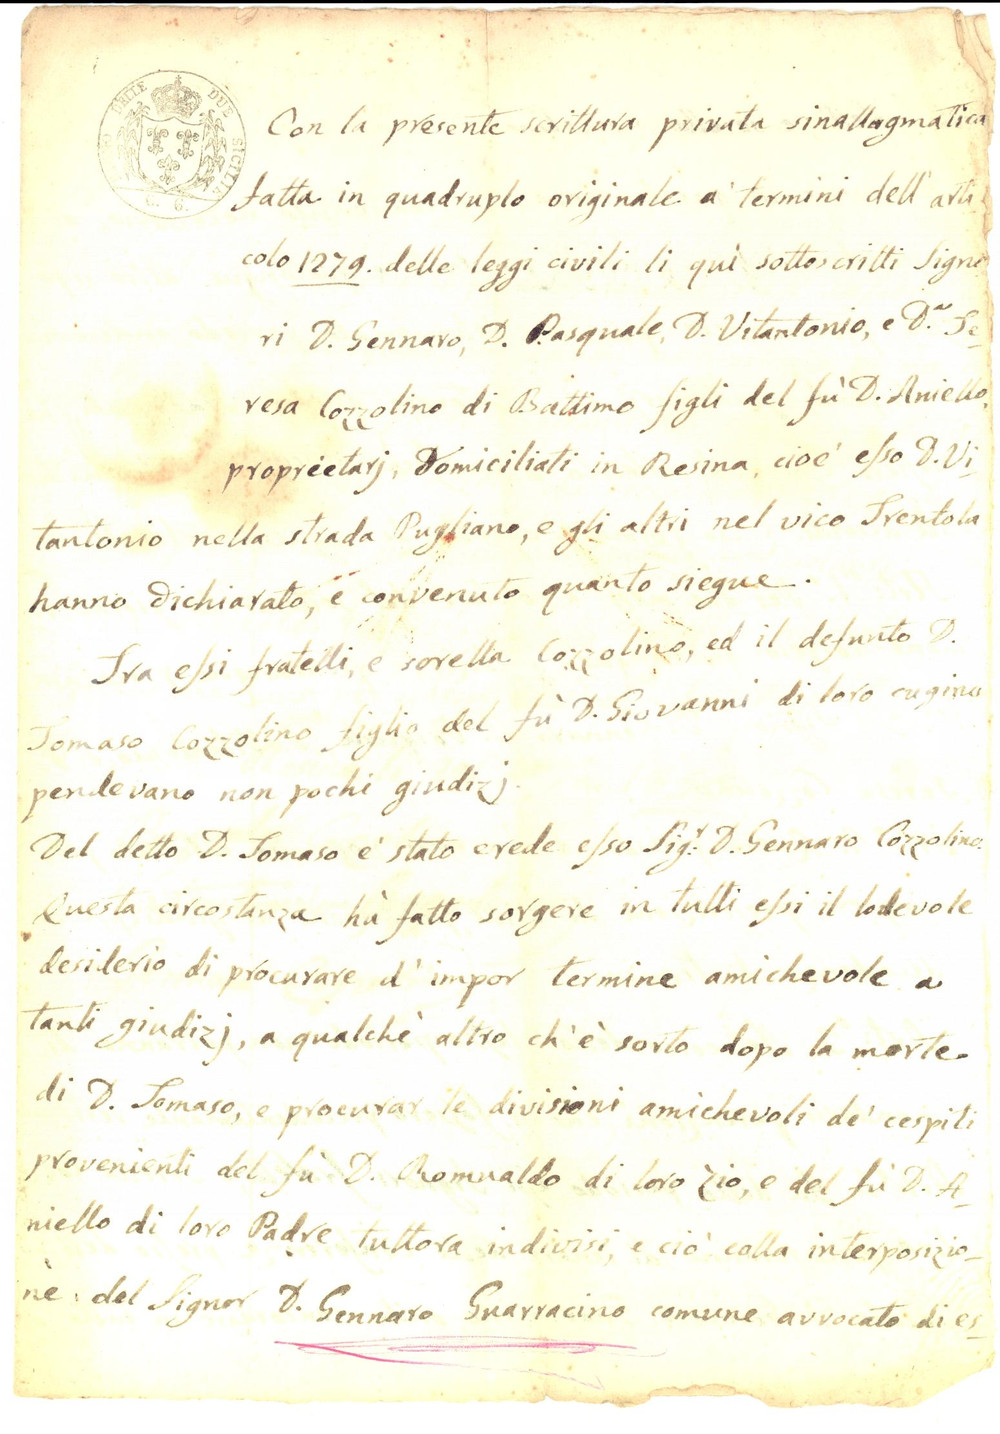 UNITE DUE SICILIE
G. 6.
Con la presente scrittura privata sinallagmatica
fatta in quadruplo originale a' termini dell' arti
colo 1279. delle leggi civili li quì sottoscritti Signo
ri D. Gennaro, D. Pasquale, D. Vitantonio, e D.ª Te-
resa Cozzolino di Battimo figli del fù D. Aniello,
proprietarj, Domiciliati in Resina, cioè esso D. Vi-
tantonio nella strada Pugliano, e gli altri nel vico Trentola
hanno dichiarato, e convenuto quanto siegue.
Tra essi fratelli, e sorella Cozzolino, ed il defunto D.
Tomaso Cozzolino figlio del fù D. Giovanni di loro cugino
pendevano non pochi giudizj.
Del detto D. Tomaso e' stato erede esso Sig.r D. Gennaro Cozzolino.
Questa circostanza hà fatto sorgere in tutti essi il lodevole
desiderio di procurare d' impor termine amichevole a
tanti giudizj, a qualchè altro ch' è sorto dopo la morte
di D. Tomaso, e procurar le divisioni amichevoli de' cespiti
provenienti del fù D. Romualdo di loro Zio, e del fù D. A-
niello di loro Padre tuttora indivisi, e ciò colla interposizio-
ne del Signor D. Gennaro Guarracino comune avvocato di es-